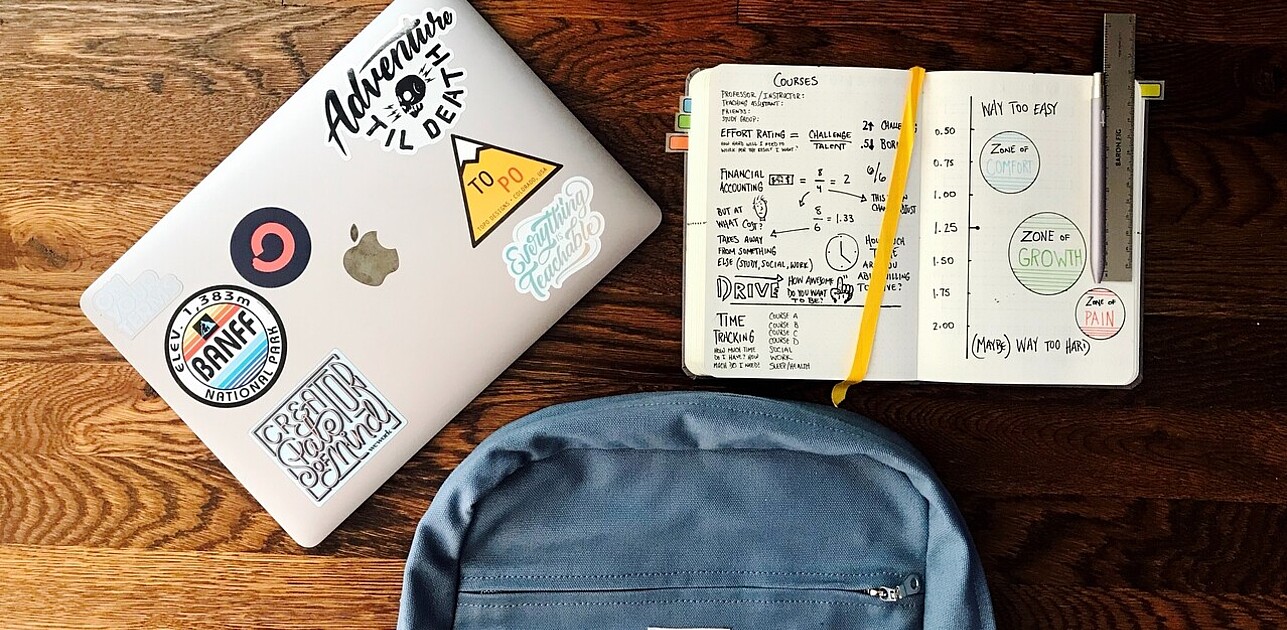 Adventure
'TIL DEATH
TO PO
TOPO DESIGNS • COLORADO, USA
Everything
Teachable
ELEV. 1,383m
BANFF
NATIONAL PARK
CREATOR
State
of Mind
COURSES
PROFESSOR / INSTRUCTOR:
TEACHING ASSISTANT:
FRIENDS:
STUDY GROUP:
EFFORT RATING = CHALLENGE
TALENT
HOW HARD WILL I NEED TO
WORK FOR THE RESULT I WANT?
2↑
.5↓
FINANCIAL
ACCOUNTING = 8/4 = 2
6/6
THIS
BUT AT
WHAT COST?
8/6 = 1.33
TAKES AWAY
FROM SOMETHING
ELSE (STUDY, SOCIAL, WORK)
HOW
ARE
DRIVE
HOW AWESOME
DO YOU WANT
TO BE?
TIME
TRACKING
HOW MUCH TIME
DO I HAVE? HOW
MUCH DO I NEED?
COURSE A
COURSE B
COURSE C
COURSE D
SOCIAL
WORK
SLEEP/HEALTH
WAY TOO EASY
0.50
ZONE OF
COMFORT
0.75
1.00
1.25
ZONE OF
GROWTH
1.50
1.75
ZONE OF
PAIN
2.00
(MAYBE) WAY TOO HARD
BARON FIG